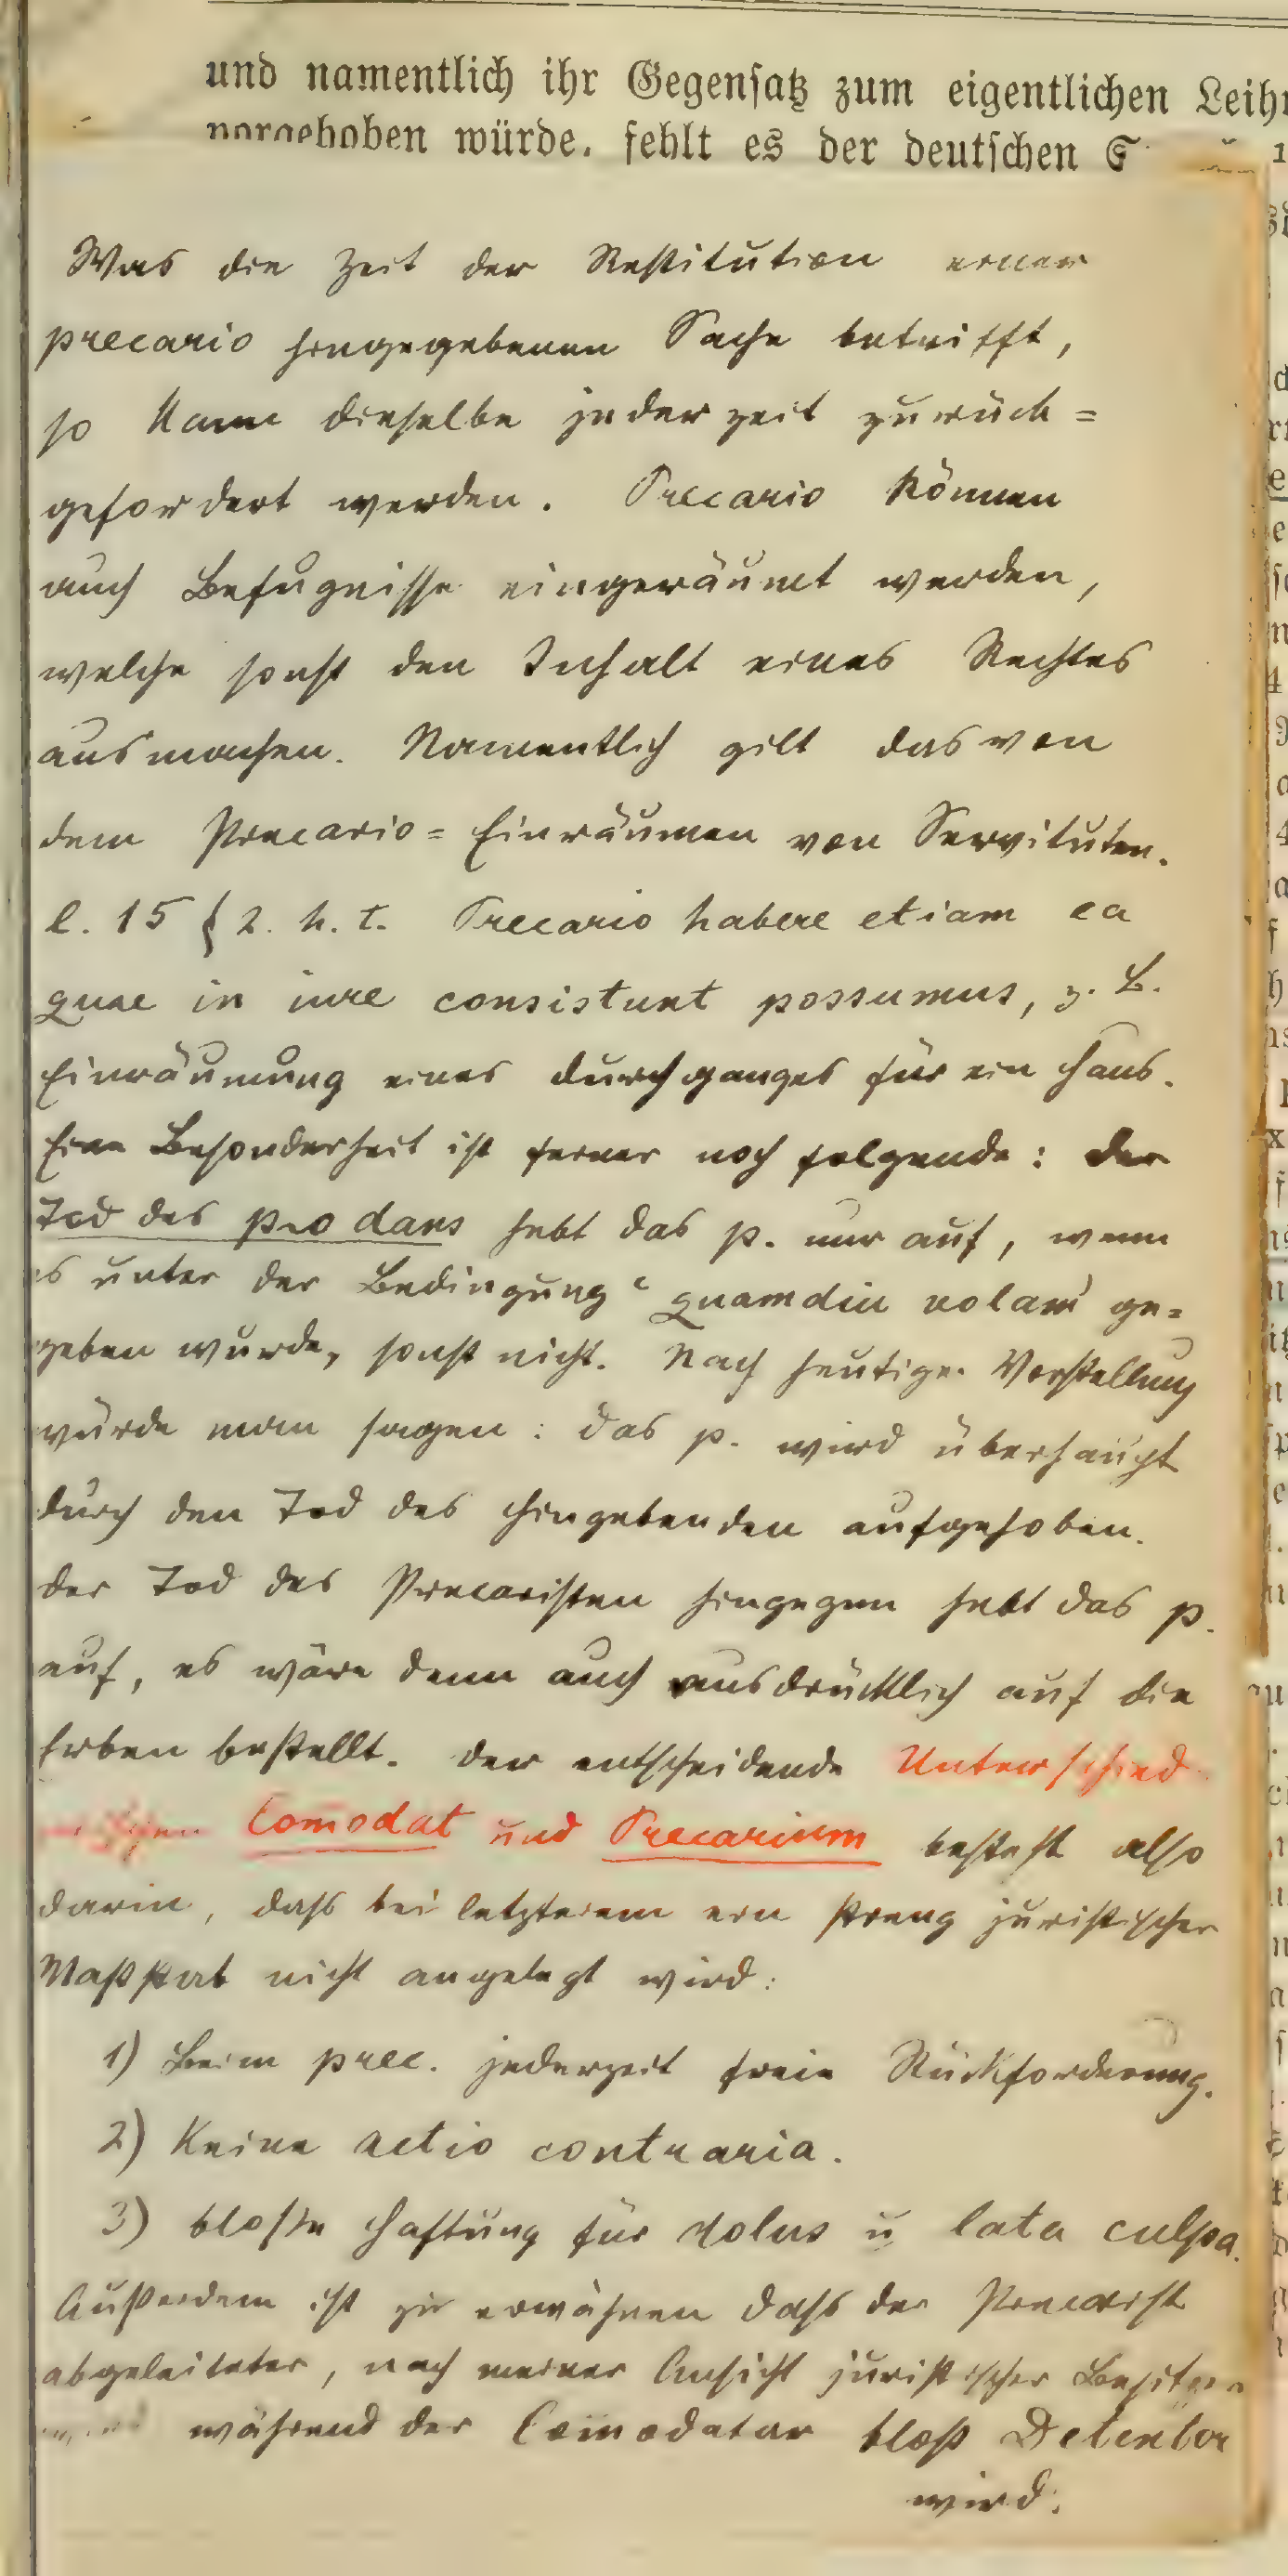 und namentlich ihr Gegensatz zum eigentlichen
würde, fehlt es der deutschen
Was die Zeit der Restitution einer
precario hingegebenen Sache betrifft,
so kann dieselbe jederzeit zurück=
gefordert werden. Precario können
auch Befugnisse eingeräumt werden,
welche sonst den Inhalt eines Rechtes
ausmachen. Namentlich gilt das von
dem Precario=Einräumen von Servituten.
l. 15 § 2. h. t. Precario habere etiam ea
quae in iure consistunt possumus, z. B.
Einräumung eines Durchganges für ein Haus.
Eine Besonderheit ist ferner noch folgende: Der
Tod des p-o dans hebt das p. nur auf, wenn
es unter der Bedingung "quamdiu volam" ge=
geben wurde, sonst nicht. Nach heutiger Vorstellung
würde man sagen: Das p. wird überhaupt
durch den Tod des Hingebenden aufgehoben.
Der Tod des Precaristen hingegen hebt das p.
auf, es wäre denn auch ausdrücklich auf die
Erben bestellt. Der entscheidende Unterschied
zwischen Com̅odat und Precarium besteht also
darin, daß bei letzterem ein streng juristischer
Maßstab nicht angelegt wird:
1) Beim prec. jederzeit freie Rückforderung.
2) Keine actio contraria.
3) bloße Haftung für dolus u lata culpa.
Außerdem ist zu erwähnen daß der Precarist
abgeleiteter, nach meiner Ansicht juristischer Besitzer
während der Com̅odatar bloß Detentor
wird.